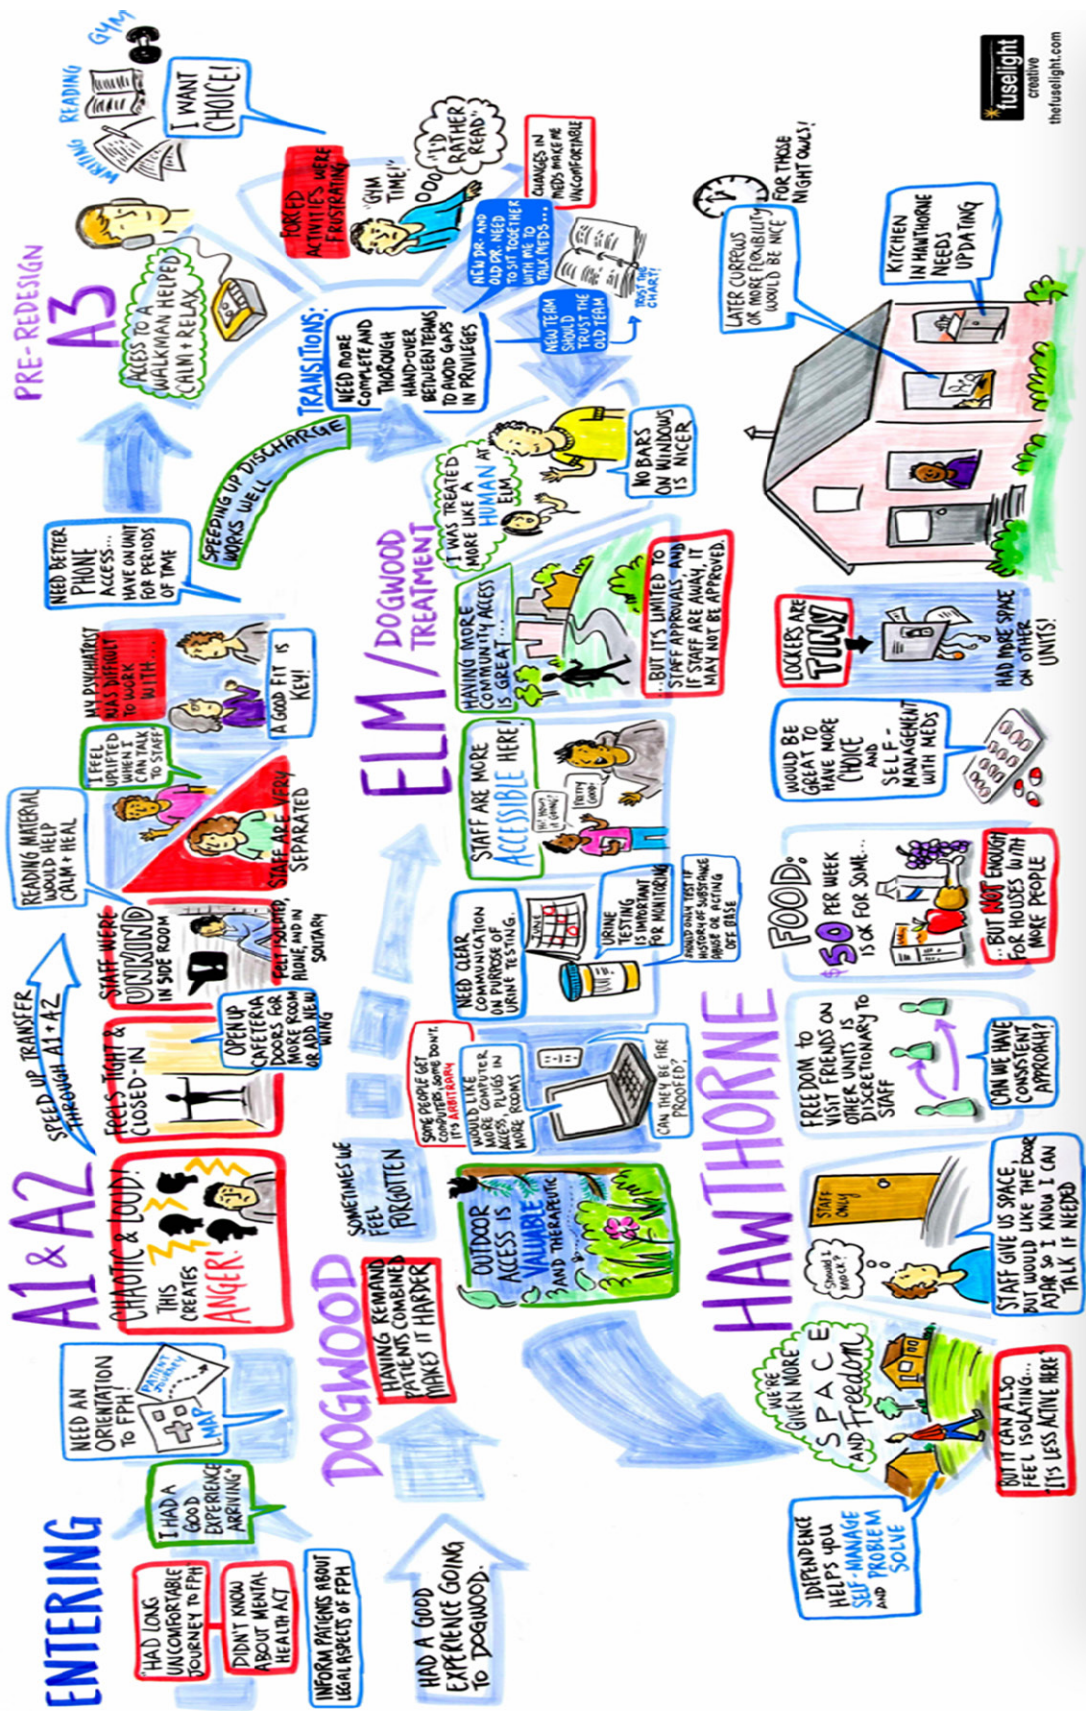 ENTERING
"HAD LONG
UNCOMFORTABLE
JOURNEY TO FPH"
DIDN'T KNOW
ABOUT MENTAL
HEALTH ACT
INFORM PATIENTS ABOUT
LEGAL ASPECTS OF FPH
I HAD A
GOOD
EXPERIENCE
ARRIVING"
NEED AN
ORIENTATION
TO FPH!
MAP
PATIENT
JOURNEY
A1 & A2
CHAOTIC & LOUD!
THIS
CREATES
ANGER!
SPEED UP TRANSFER
THROUGH A1 + A2
FEELS TIGHT &
CLOSED-IN
OPEN UP
CAFETERIA
DOORS FOR
MORE ROOM
OR ADD NEW
WING
STAFF WERE
UNKIND
IN SIDE ROOM
FELT ISOLATED,
ALONE, AND IN
SOLITARY
READING MATERIAL
WOULD HELP
CALM + HEAL
I FEEL
UPLIFTED
WHEN I
CAN TALK
TO STAFF
STAFF ARE VERY
SEPARATED
MY PSYCHIATRIST
WAS DIFFICULT
TO WORK
WITH...
A GOOD FIT IS
KEY!
NEED BETTER
PHONE
ACCESS...
HAVE ON UNIT
FOR PERIODS
OF TIME
SPEEDING UP DISCHARGE
WORKS WELL
PRE-REDESIGN
A3
ACCESS TO A
WALKMAN HELPED
CALM + RELAX
WRITING
READING
GYM
I WANT
CHOICE!
FORCED
ACTIVITIES WERE
FRUSTRATING
"GYM
TIME!"
"I'D
RATHER
READ"
TRANSITIONS:
NEED MORE
COMPLETE AND
THOROUGH
HAND-OVER
BETWEEN TEAMS
TO AVOID GAPS
IN PRIVILEGES
NEW DR. AND
OLD DR. NEED
TO SIT TOGETHER
WITH ME TO
TALK MEDS...
CHANGES IN
MEDS MAKE ME
UNCOMFORTABLE
NEW TEAM
SHOULD
TRUST THE
OLD TEAM
TRUST THE
CHART!
DOGWOOD
HAD A GOOD
EXPERIENCE GOING
TO DOGWOOD.
HAVING REMAND
PATIENTS COMBINED
MAKES IT HARDER
SOMETIMES WE
FEEL
FORGOTTEN
OUTDOOR
ACCESS IS
VALUABLE
AND THERAPEUTIC
SOME PEOPLE GET
COMPUTERS, SOME DON'T.
IT'S ARBITRARY
WOULD LIKE
MORE COMPUTER
ACCESS PLUGS IN
MORE ROOMS
CAN THEY BE FIRE
PROOFED?
NEED CLEAR
COMMUNICATION
ON PURPOSE OF
URINE TESTING.
JUNE
URINE
TESTING
IS IMPORTANT
FOR MONITORING
SHOULD ONLY TEST IF
HISTORY OF SUBSTANCE
ABUSE OR ACTING
OFF BASE
ELM/DOGWOOD
TREATMENT
STAFF ARE MORE
ACCESSIBLE HERE!
HI! HOW'S
IT GOING?
PRETTY
GOOD!
HAVING MORE
COMMUNITY ACCESS
IS GREAT...
...BUT IT'S LIMITED TO
STAFF APPROVALS AND
IF STAFF ARE AWAY, IT
MAY NOT BE APPROVED.
I WAS TREATED
MORE LIKE A
HUMAN AT
ELM.
NO BARS
ON WINDOWS
IS NICER
HAWTHORNE
WE'RE
GIVEN MORE
SPACE
AND FREEDOM
IDIPENDENCE
HELPS YOU
SELF-MANAGE
AND PROBLEM
SOLVE
BUT IT CAN ALSO
FEEL ISOLATING...
"IT'S LESS ACTIVE HERE"
SHOULD I
KNOCK?
STAFF
ONLY
STAFF GIVE US SPACE
BUT WOULD LIKE THE DOOR
AJAR SO I KNOW I CAN
TALK IF NEEDED
FREEDOM TO
VISIT FRIENDS ON
OTHER UNITS IS
DISCRETIONARY TO
STAFF
CAN WE HAVE
CONSISTENT
APPROACH?
FOOD:
$50 PER WEEK
IS OK FOR SOME...
...BUT NOT ENOUGH
FOR HOUSES WITH
MORE PEOPLE
WOULD BE
GREAT TO
HAVE MORE
CHOICE
AND
SELF-
MANAGEMENT
WITH MEDS
LOCKERS ARE
TINY
HAD MORE SPACE
ON OTHER
UNITS!
LATER CURFEWS
OR MORE FLEXIBILITY
WOULD BE NICE
FOR THOSE
NIGHT OWLS!
KITCHEN
IN HAWTHORNE
NEEDS
UPDATING
fuselight
creative
thefuselight.com